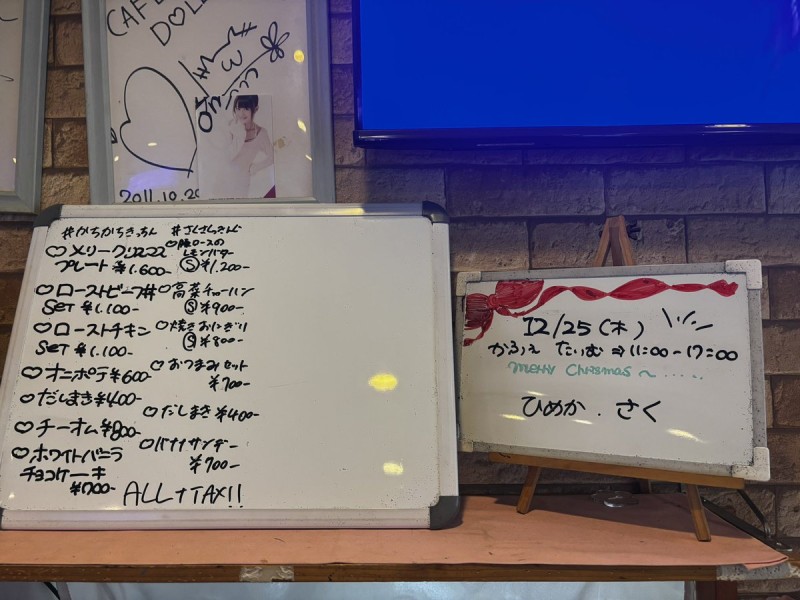 CAFE
DOLL
2011.10.20
#かちかちきっちん
♡メリークリスマス
プレート ¥1.600-
♡ローストビーフ丼
SET ¥1.100-
♡ローストチキン
SET ¥1.100-
♡オニポテ ¥600-
♡だしまき ¥400-
♡チーオム ¥800-
♡ホワイトバニラ
チョコケーキ
¥700-
#さくさくきっちん
♡豚ロースの
レモンバター
Ⓢ ¥1,200-
♡高菜チャーハン
Ⓢ ¥900-
♡焼きおにぎり
Ⓢ ¥800-
♡おつまみセット
¥700-
♡だしまき ¥400-
♡バナナサンデー
¥700-
ALL+TAX!!
12/25(木)
かふぇ たいむ ⇒ 11:00-17:00
Merry Chrismas ~ .....
ひめか . さく